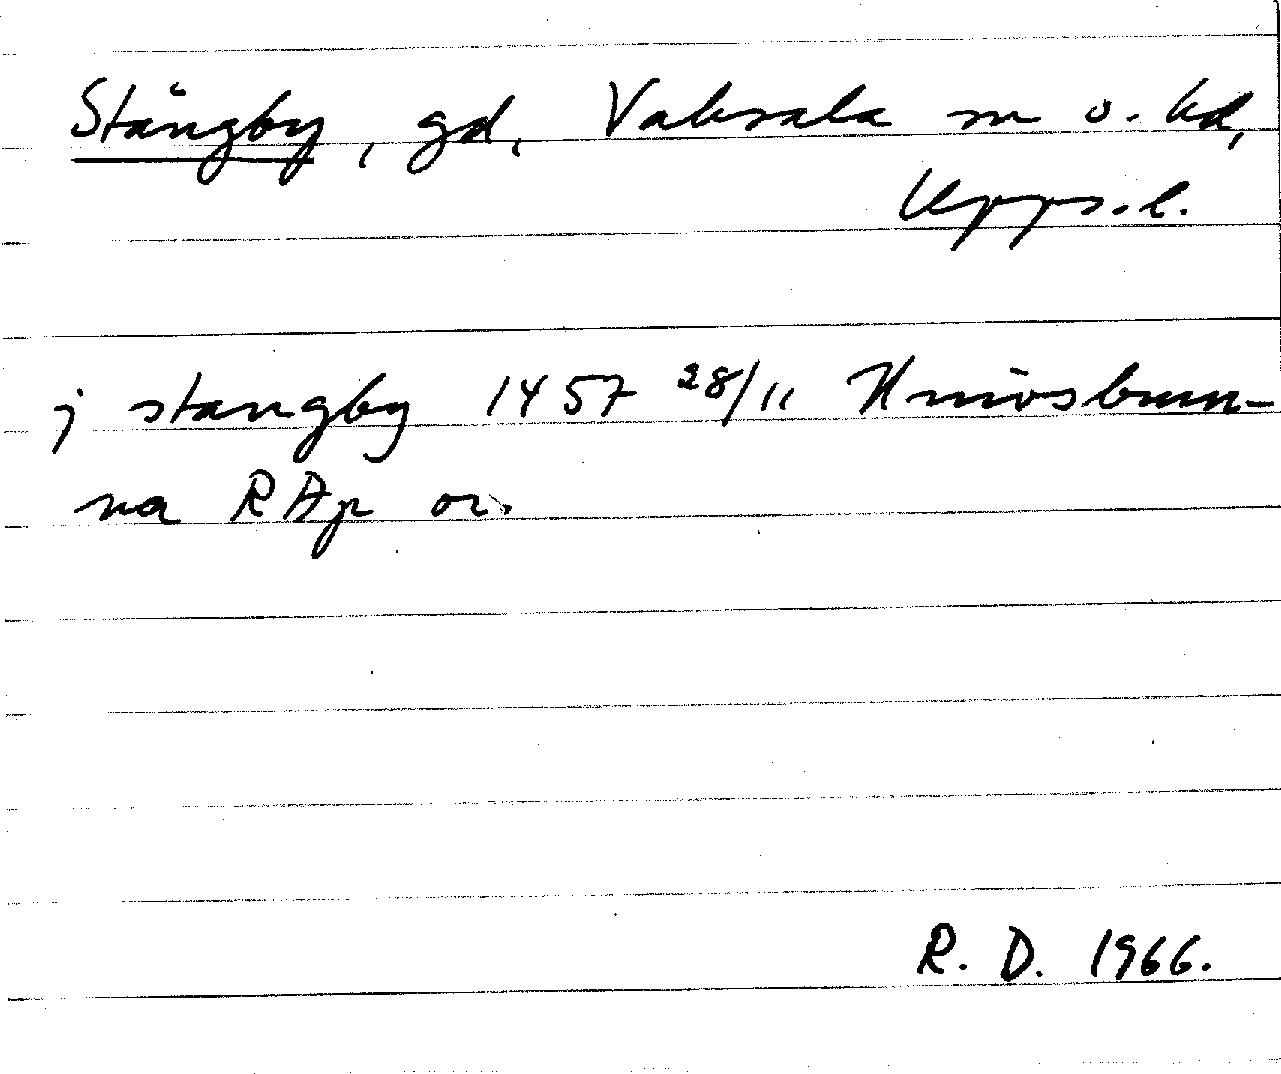 Stångby, gd, Vaksala sn o. hd,
Upps.l.
j stangby 1457 28/11
na RAp or.
R. D. 1966.